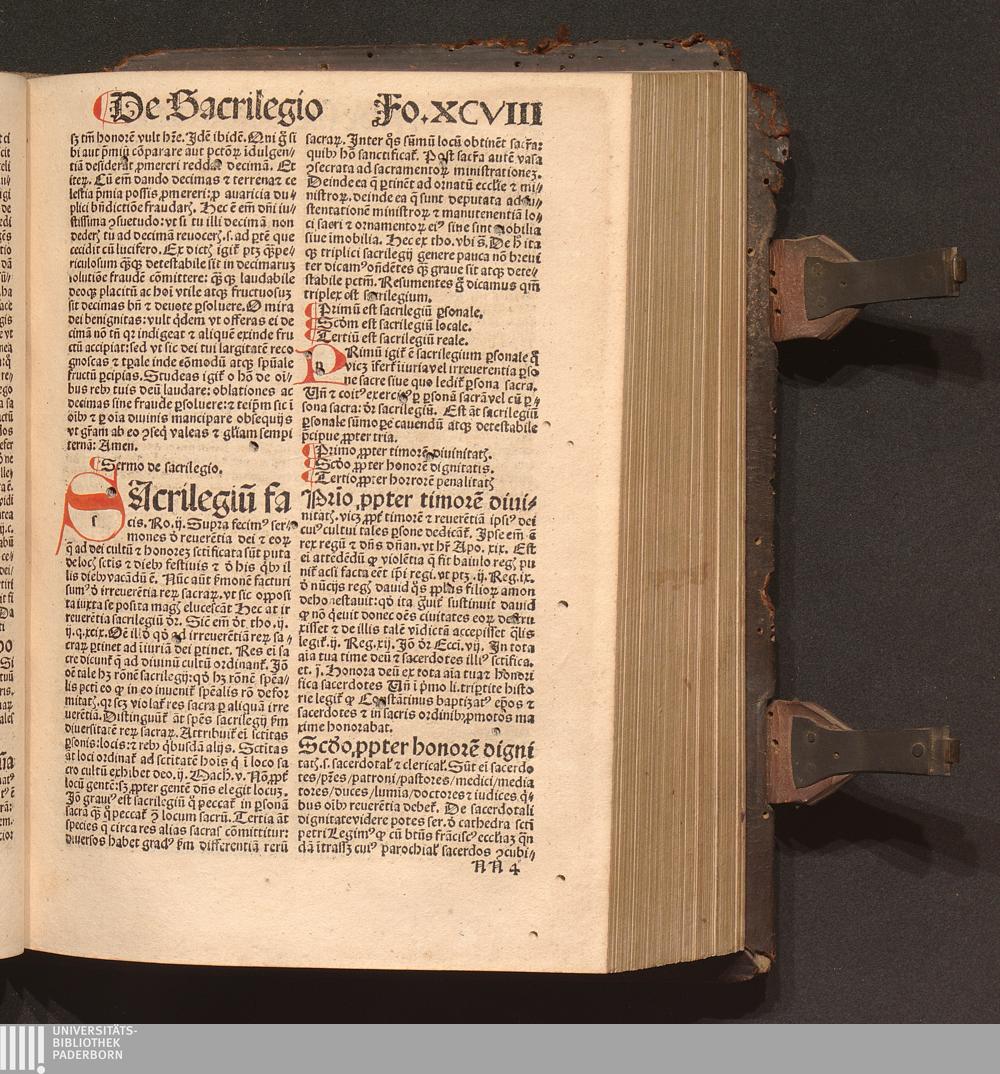 De Sacrilegio Fo.XCVIII
sʒ tm̄ honorē vult hr̄e. Jdē ibidē. Qni g̃ si
bi aut p̃mijũ cōparare aut pctōꝝ īdulgen⸗
tiā desiderat ꝓmereri reddat decimā. Et
iteꝝ. Cū em̄ dando decimas ⁊ terrena⁊ ce
lestia p̃mia possis ꝓmereri: ꝓ auaricia du⸗
plici bn̄dictiōe fraudarꝭ. Hec ē em̄ dn̄i iu⸗
stissima ꝯsuetudo: vt si tu illi decimā non
dederꝭ tu ad decimā reuocerꝭ .s. ad ptē que
cecidit cū lucifero. Ex dictꝭ igit᷑ ptꝫ q̃ꝫpe⸗
riculosum q̃ꝫqꝫ detestabile sit in decimaruꝫ
solutiōe fraudē cōmittere: q̃ꝫqꝫ laudabile
deoqꝫ placitū ac hoī vtile atqꝫ fructuosuꝫ
sit decimas bn̄ ⁊ deuote ꝑsoluere. O mira
dei benignitas: vult q̇dem vt offeras ei de
cimā nō tn̄ qꝛ indigeat ⁊ aliquē exinde fru
ctū accipiat: sed vt sic dei tui largitatē reco
gnoscas ⁊ tꝑale inde eōmodū atqꝫ spūale
fructū ꝑcipias. Studeas igit᷑ o hō de oī⸗
bus rebꝰ tuis deū laudare: oblationes ac
decimas sine fraude ꝑsoluere: ⁊ teip̄m sic ī
oībꝰ ⁊ ꝑ oīa diuinis mancipare obsequijs
vt gr̄am ab eo ꝯseq̇ valeas ⁊ gl̄iam sempi
ternā: Amen.
Sermo de sacrilegio.
SAcrilegiū fa
cis. Ro. ij. Supra fecimꝰ ser⸗
mones ꝺ reuerētia dei ⁊ eoꝝ
q̄ ad dei cultū ⁊ honoreꝫ sctificata sūt puta
de locꝭ sctis ⁊ diebꝰ festiuis ⁊ ꝺ his q̇bꝰ il
lis diebꝰ vacādū ē. Nūc aūt ẜmonē facturi
sumꝰ ꝺ irreuerētia reꝝ sacraꝝ. vt sic opposi
ta iuxta se posita magꝭ elucescāt Hec at ir
reuerētia sacrilegiū ꝺr. Sic em̄ ꝺt tho. ij.
ij. q. xcix. Oē ill̄ꝺ qꝺ ad irreuerētiā reꝝ sa⸗
craꝝ ꝑtinet ad iniuriā dei ꝑtinet. Res ei sa
cre dicunt᷑ q̄ ad diuinū cultū ordinant᷑. Jō
oē tale hꝫ rōnē sacrilegij: qꝺ hꝫ rōnē spēa⸗
lis pcti eo ꝙ in eo inuenit᷑ spēalis rō defor
mitatꝭ. qꝛ scꝫ violat᷑ res sacra ꝑ aliquā irre
uerētiā. Distinguūt᷑ āt spēs sacrilegij ẜm
diuersitatē reꝝ sacraꝝ. Attribuit᷑ ei sctitas
ꝑsonis: locis: ⁊ rebꝰ q̇busdā alijs. Sctitas
āt loci ordinat᷑ ad sctitatē hoīs q̄ ī loco sa
cro cultū exhibet deo. ij. Mach. v. Nō ꝓpt᷑
locū gentē: sꝫ ꝓpter gentē dn̄s elegit locuꝫ.
Jō grauiꝰ est sacrilegiū q̄ peccat᷑ in ꝑsonā
sacrā q̄ꝫ q̄ peccat᷑ ꝯ locum sacrū. Tertia āt
species q̄ circa res alias sacras cōmittitur:
diuersos habet gradꝰ ẜm differentiā rerū
sacraꝝ. Inter q̄s sūmū locū obtinēt sacr̄a:
quibꝰ hō sanctificat᷑. Post sacr̄a autē vasa
ꝯsecrata ad sacramentoꝝ ministrationeꝫ.
Deinde ea q̄ ꝑtinēt ad ornatū eccl̄ie ⁊ mi⸗
nistroꝝ. deinde ea q̄ sunt deputata ad su⸗
stentationē ministroꝝ ⁊ manutenentiā lo⸗
ci sacri ⁊ ornamentoꝝ eiꝰ siue sint mobilia
siue īmobilia. Hec ex tho. vbi s̄. De h̄ ita
qꝫ triplici sacrilegij genere pauca nō breui
ter dicamꝰ oñdētes q̄ꝫ graue sit atqꝫ dete⸗
stabile pctm̄. Resumentes g̃ dicamus qm̄
triplex est sacrilegium.
Primū est sacrilegiū ꝑsonale.
Scd̄m est sacrilegiū locale.
Tertiū est sacrilegiū reale.
PRimū igit᷑ ē sacrilegium ꝑsonale q̄
vicꝫ īfert᷑ iniuria vel irreuerentia ꝑso
ne sacre siue quo ledit᷑ ꝑsona sacra.
Un̄ ⁊ coitꝰ exercitꝰ ꝑ ꝑsonā sacrā vel cū ꝑ⸗
sona sacra: ꝺr sacrilegiū. Est āt sacrilegiū
ꝑsonale sūmo ꝑe cauendū atqꝫ detestabile
p̄cipue ꝓpter tria.
Primo ꝓpter timorē diuinitatꝭ.
Scd̄o ꝓpter honorē dignitatis.
Tertio ꝓpter horrorē penalitatꝭ
Prīo ꝓpter timorē diui⸗
nitatꝭ. vicꝫ ꝓpt᷑ timorē ⁊ reuerētiā ipsiꝰ dei
cuiꝰ cultui tales ꝑsone dedicāt᷑. Ipse em̄ ē
rex regū ⁊ dn̄s dn̄an. vt hr̄ Apo. xix. Est
ei attēdēdū ꝙ violētia q̄ fit baiulo regꝭ pu
nit᷑ acsi facta eēt ip̄i regi. vt ptꝫ .ij. Reg. ix.
ꝺ nūcijs regꝭ dauid q̄s ꝓplꝺs filioꝝ amon
dehonestauit: qꝺ ita grauit᷑ sustinuit dauid
ꝙ nō q̇euit donec oēs ciuitates eoꝝ destru
xisset ⁊ de illis talē vīdictā accepisset q̄lis
legit᷑ .ij. Reg. xij. Jō ꝺr Ecci. vij. In tota
aīa tua time deū ⁊ sacerdotes illiꝰ sctifica.
et. j. Honora deū ex tota aīa tua⁊ honori
fica sacerdotes Un̄ ī p̄mo li. triꝑtite histo
rie legit᷑ ꝙ Constātinus baptizatꝰ ep̄os ⁊
sacerdotes ⁊ in sacris ordinibꝰ ꝓmotos ma
xime honorabat.
Scd̄o ꝓpter honorē digni
tatꝭ .s. sacerdotal᷑ ⁊ clerical᷑. Sūt ei sacerdo
tes/pr̄es/patroni/pastores/medici/media
tores/duces/lumia/doctores ⁊ iudices q̇⸗
bus oībꝰ reuerētia debet᷑. De sacerdotali
dignitate videre potes ser. ꝺ cathedra scti
petri Legimꝰ ꝙ cū btūs frāciscꝰ eccl̄iaꝫ q̄n
dā ītrass̄ꝫ cuiꝰ parochial᷑ sacerdos ꝯcubi⸗
NN 4
UNIVERSITÄTS-
BIBLIOTHEK
PADERBORN